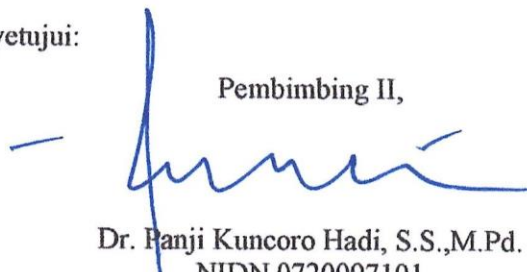 yetujui:
Pembimbing II,
Dr. Panji Kuncoro Hadi, S.S.,M.Pd.
NIDN 0720097101